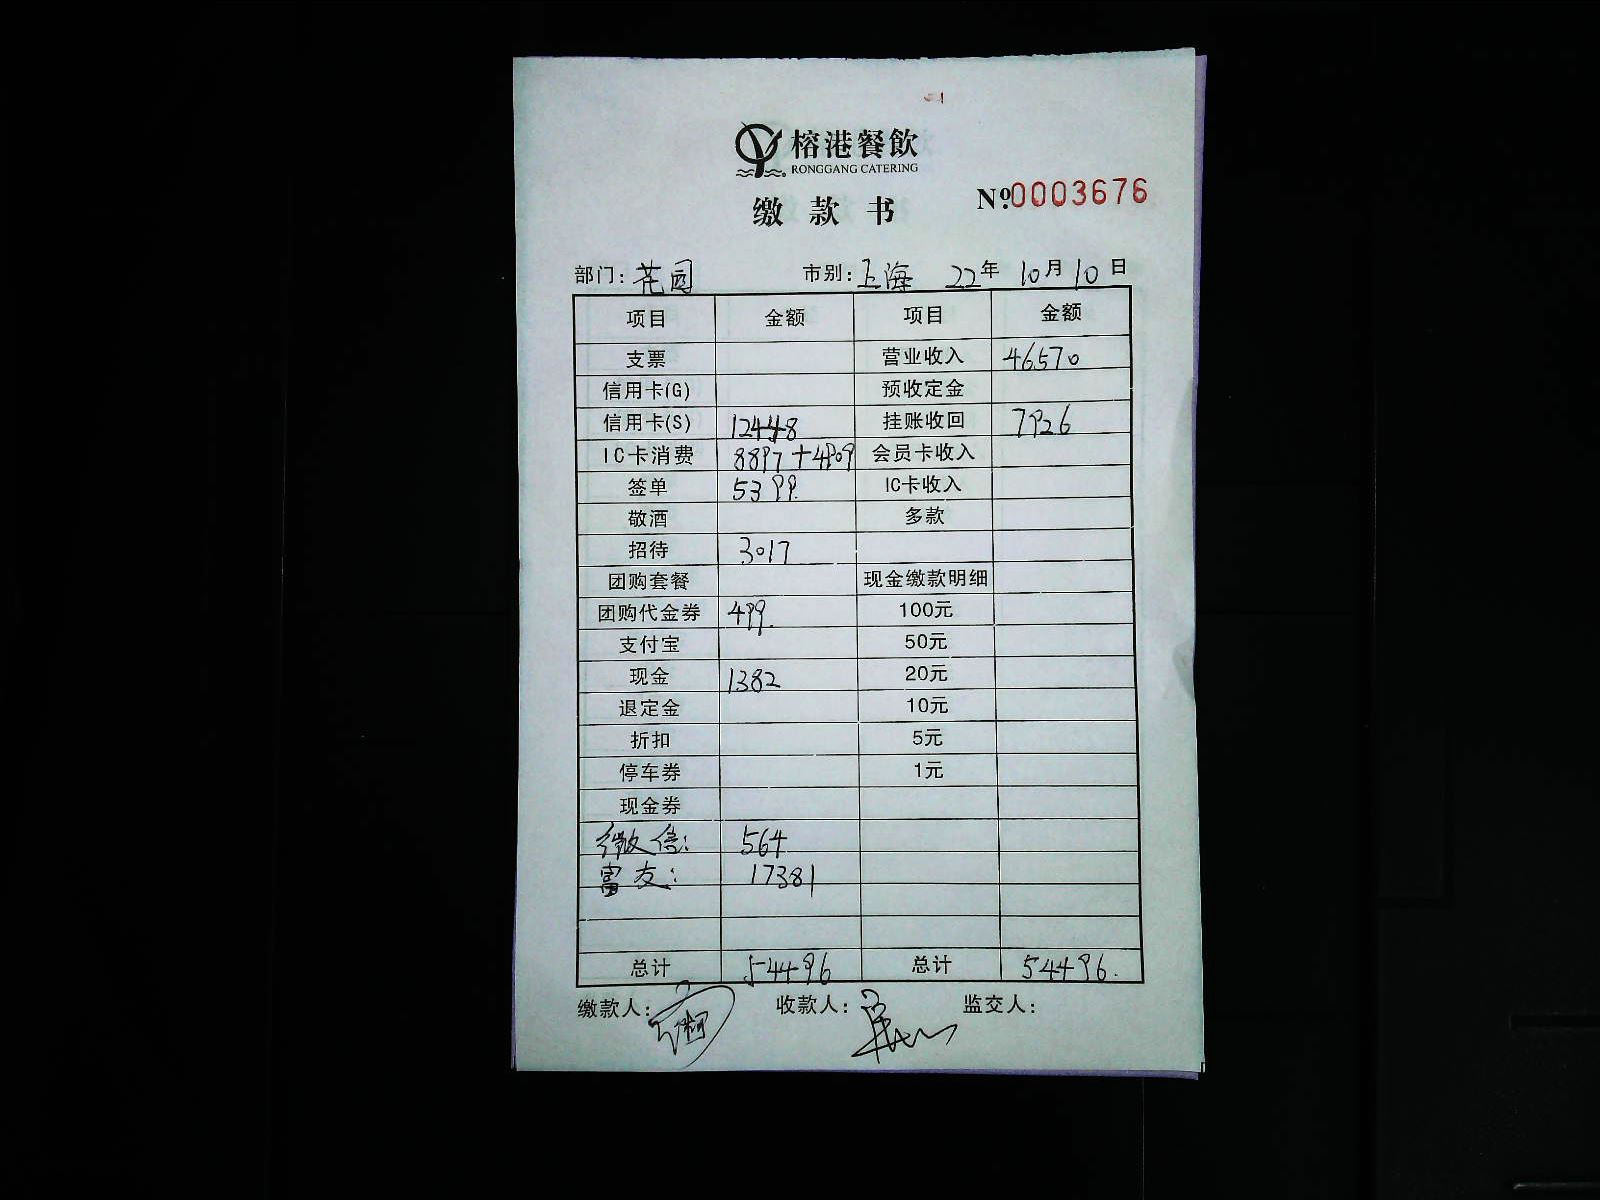 榕港餐飲
RONGGANG CATERING
缴款书
№0003676
部门：花园 市别：上海 22年10月10日
项目 金额 项目 金额
支票 营业收入 46570
信用卡(G) 预收定金
信用卡(S) 12448 挂账收回 7926
IC卡消费 8897+4909 会员卡收入
签单 5399. IC卡收入
敬酒 多款
招待 3017
团购套餐 现金缴款明细
团购代金券 499. 100元
支付宝 50元
现金 1382 20元
退定金 10元
折扣 5元
停车券 1元
现金券
微信： 564
富友： 17381
总计 54496 总计 54496.
缴款人： 收款人： 监交人：